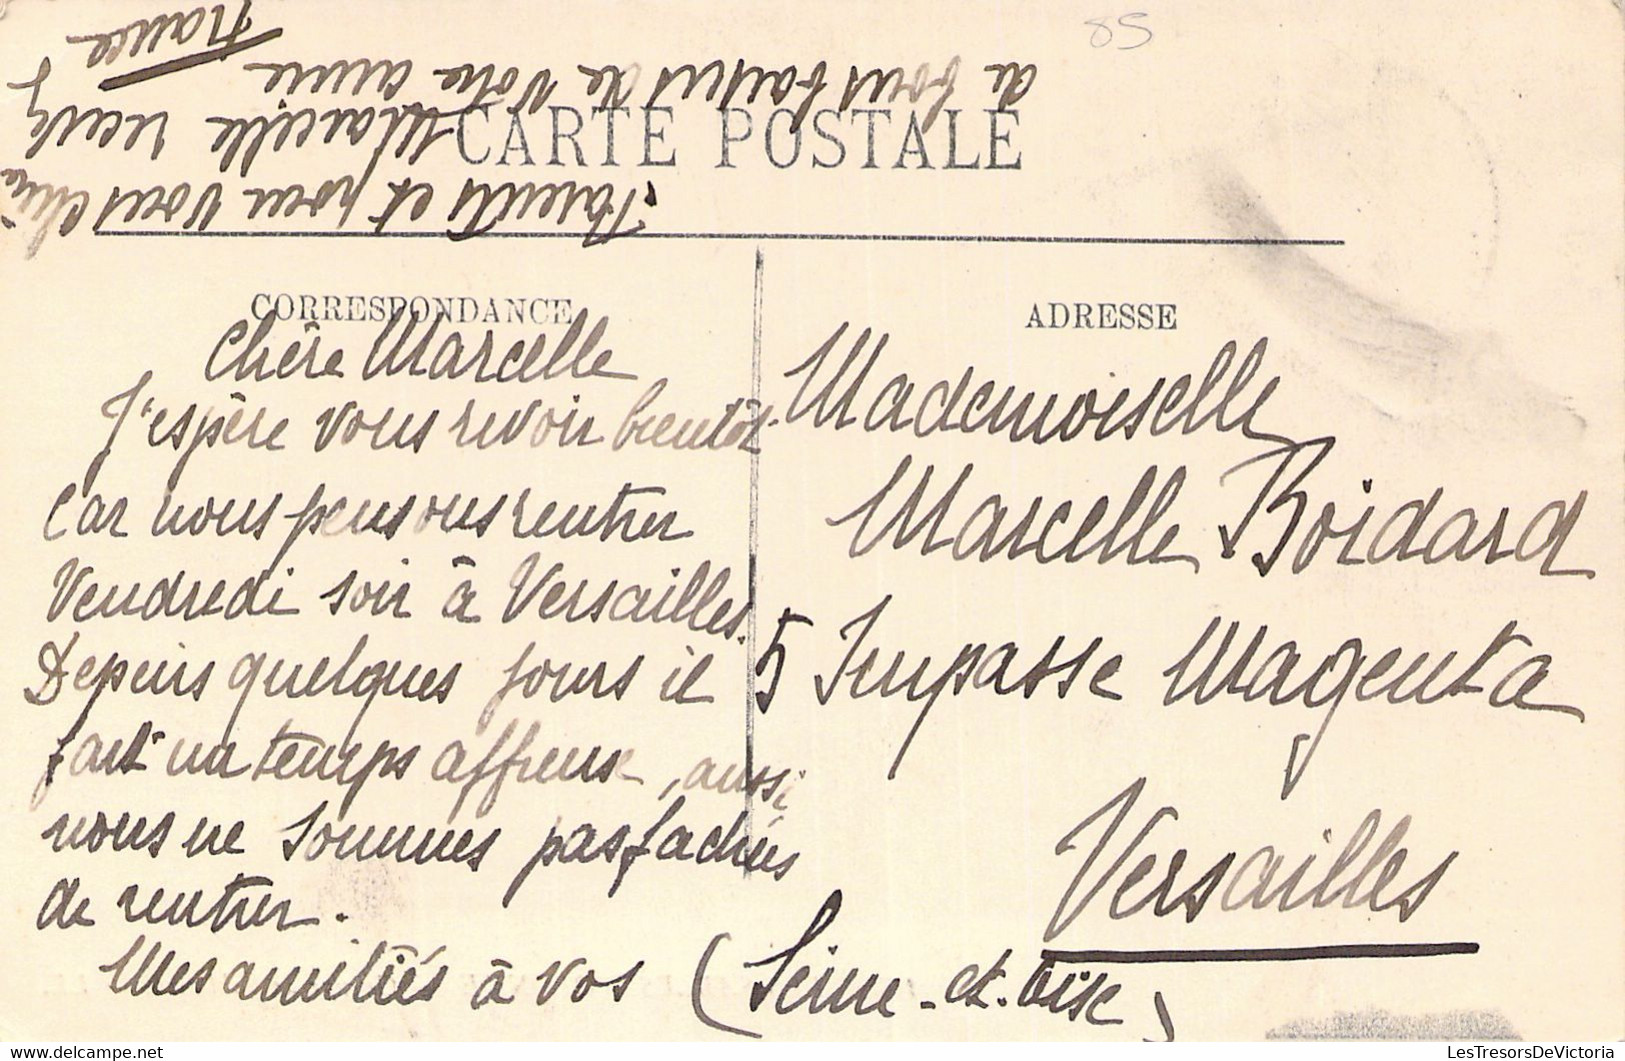 85
CARTE POSTALE
CORRESPONDANCE
Chère Marcelle
J'espère vous revoir bientôt
car nous pensons rentrer
Vendredi soir à Versailles.
Depuis quelques jours il
fait un temps affreuse, aussi
nous ne sommes pas fachées
de rentrer.
Mes amitiés à vos
Parents et pour vous chère
Marcelle
de bons baisers de votre amie
France
ADRESSE
Mademoiselle
Marcelle Boidard
5 Impasse Magenta
Versailles
(Seine-et-Oise)
LesTresorsDeVictoria